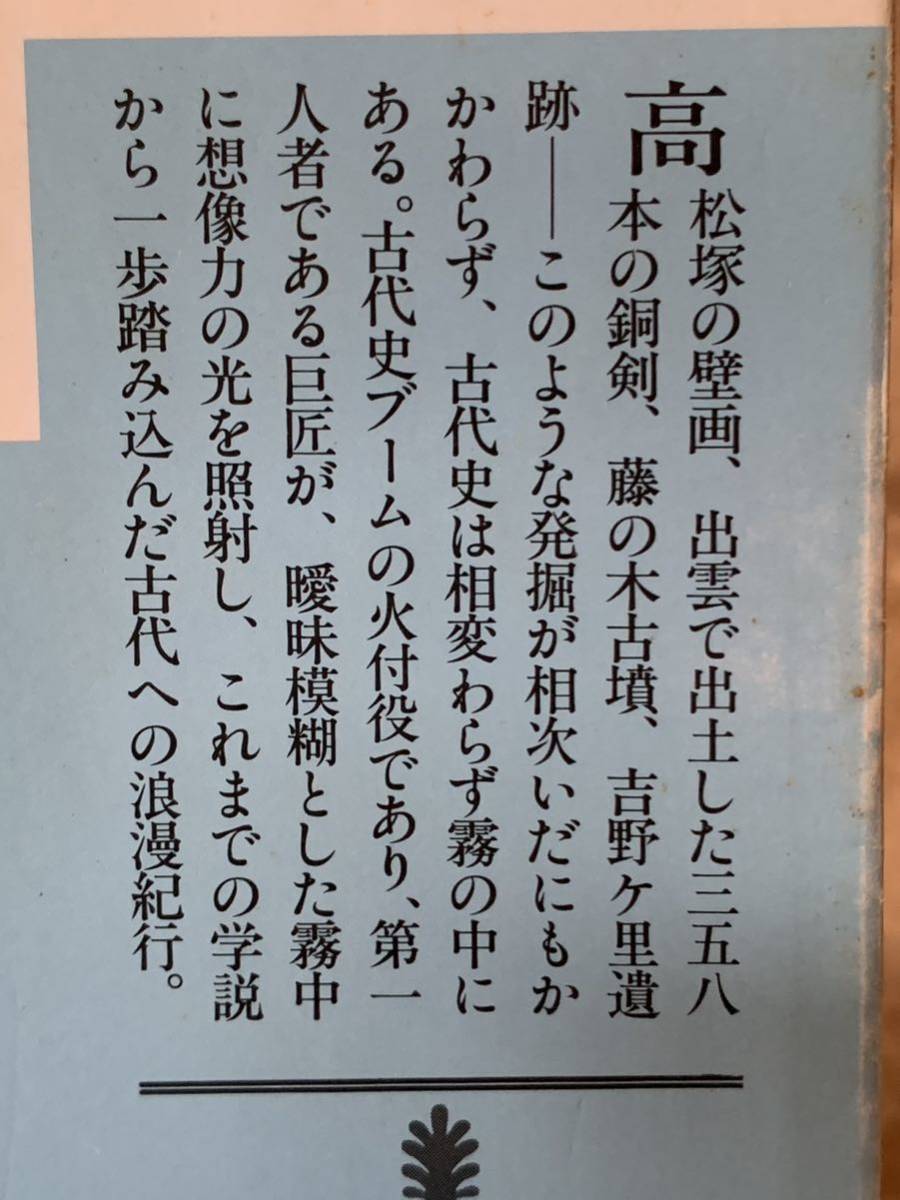 高松塚の壁画、出雲で出土した三五八
本の銅剣、藤の木古墳、吉野ケ里遺
跡――このような発掘が相次いだにもか
かわらず、古代史は相変わらず霧の中に
ある。古代史ブームの火付役であり、第一
人者である巨匠が、曖昧模糊とした霧中
に想像力の光を照射し、これまでの学説
から一歩踏み込んだ古代への浪漫紀行。